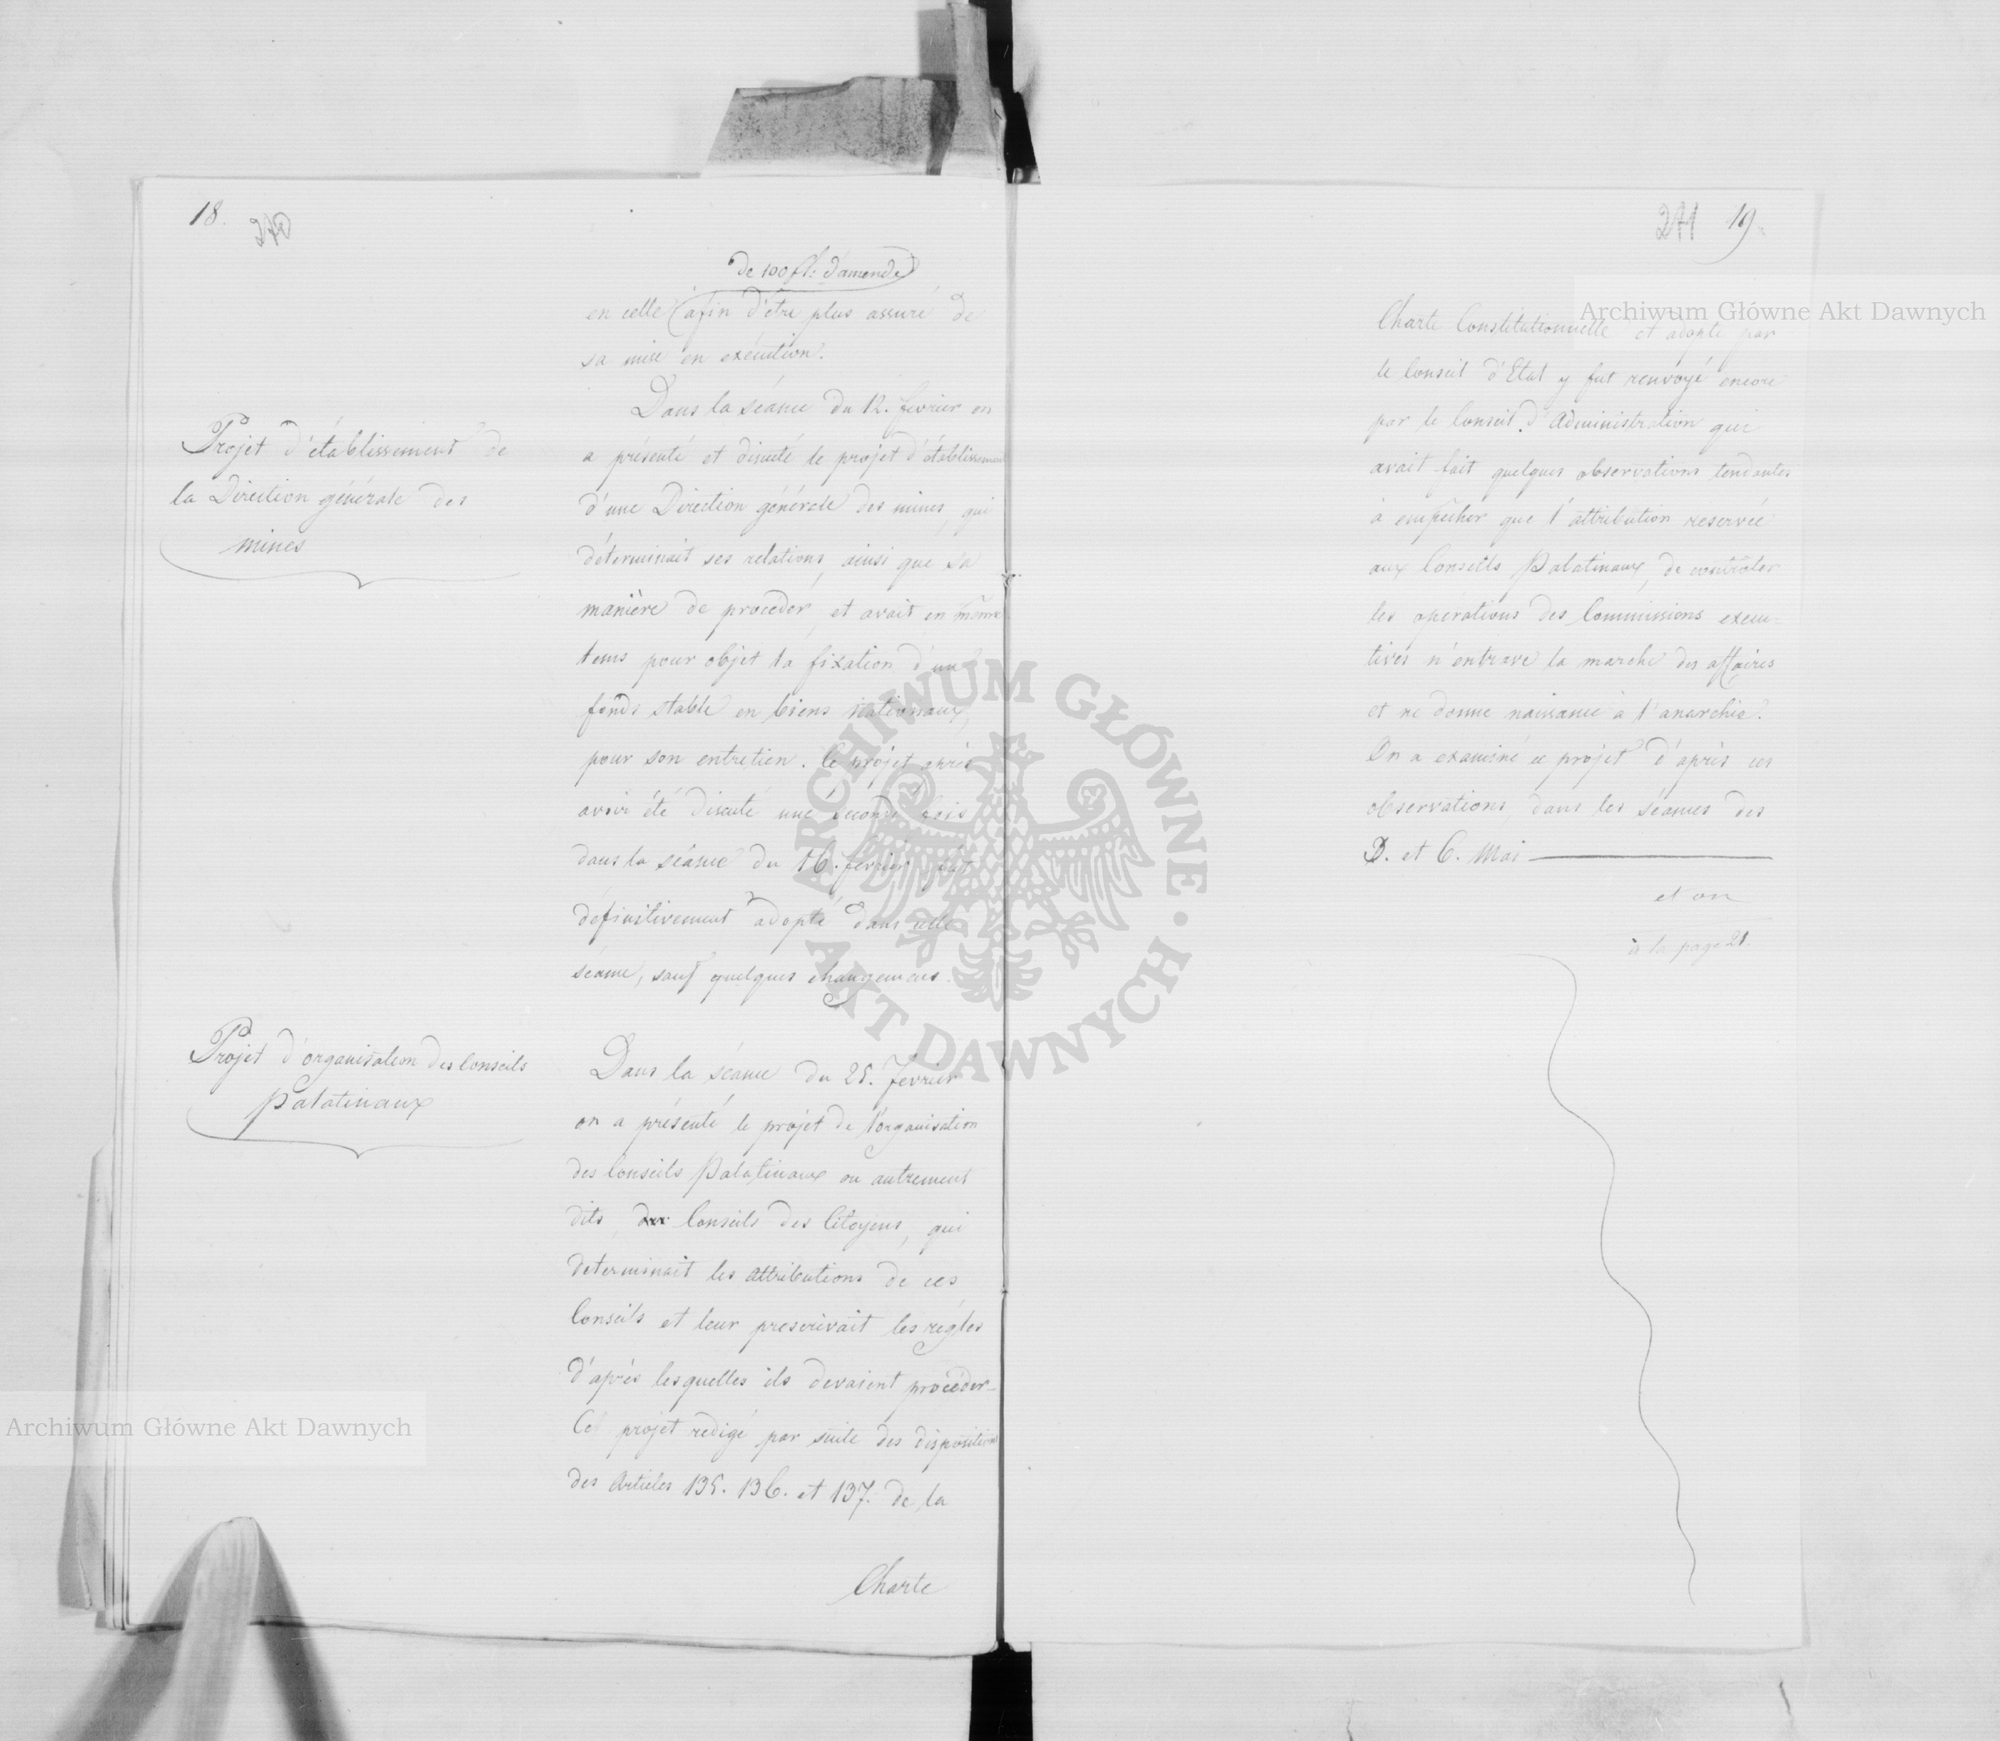 18.
270
de 100 fl: d'amende
en celle afin d'être plus assuré de
sa mise en exécution.
Projet d'établissement de
la Direction générale des
mines
Dans la séance du 12. fevrier on
a présenté et discuté le projet d'établissement
d'une Direction générale des mines, qui
déterminait ses relations, ainsi que sa
manière de proceder, et avait en même
tems pour objet la fixation d'un
fonds stable en biens nationaux,
pour son entretien. Ce projet après
avoir été discuté une seconde fois
dans la séance du 16. fevrier fut
définitivement adopté dans celle
séance, sauf quelques changemens.
Projet d'organisation des Conseils
Palatinaux
Dans la séance du 25. fevrier
on a présenté le projet de l'organisation
des Conseils Palatinaux ou autrement
dits, Conseils des Citoyens, qui
determinait les attributions de ces
Conseils et leur prescrivait les règles
d'après lesquelles ils devaient procéder.
Ce projet redigé par suite des dispositions
des Articles 135. 136. et 137. de la
Charte
271 19
Charte Constitutionnelle et adopté par
le Conseil d'Etat y fut renvoyé encore
par le Conseil d'Administration qui
avait fait quelques observations tendantes
à empêcher que l'attribution reservée
aux Conseils Palatinaux, de contrôler
les opérations des Commissions execu-
tives n'entrave la marche des affaires
et ne donne naissance à l'anarchie.
On a examiné ce projet d'après ces
observations, dans les séances des
et 6. Mai
et on
à la page 21.
Archiwum Główne Akt Dawnych
Archiwum Główne Akt Dawnych
ARCHIWUM GŁÓWNE AKT DAWNYCH